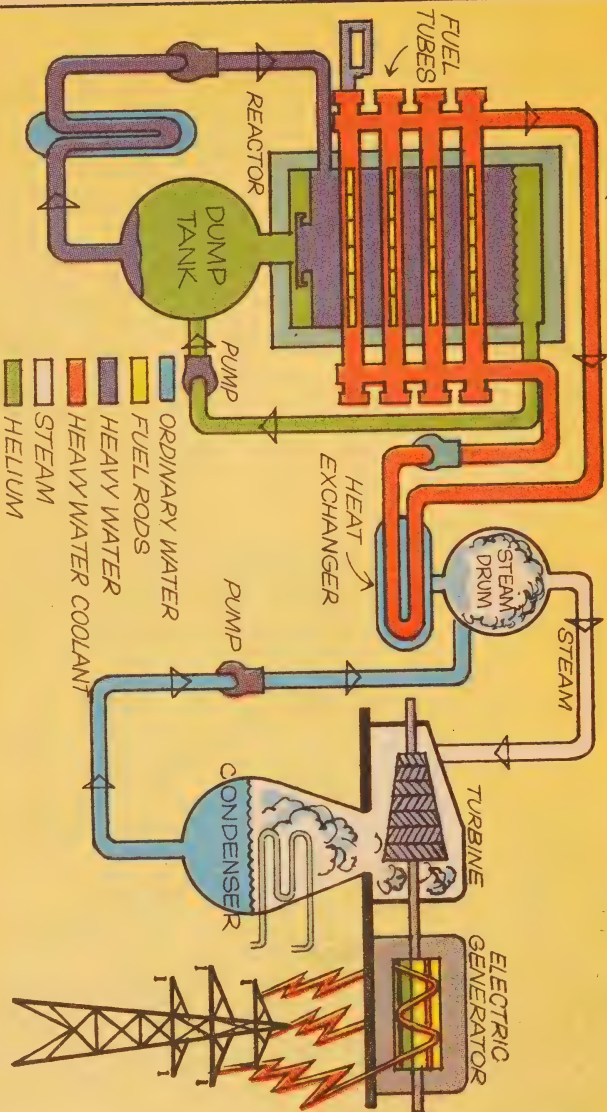 FUEL
TUBES
REACTOR
DUMP
TANK
PUMP
HEAT
EXCHANGER
STEAM
DRUM
STEAM
PUMP
TURBINE
CONDENSER
ELECTRIC
GENERATOR
ORDINARY WATER
FUEL RODS
HEAVY WATER
HEAVY WATER COOLANT
STEAM
HELIUM